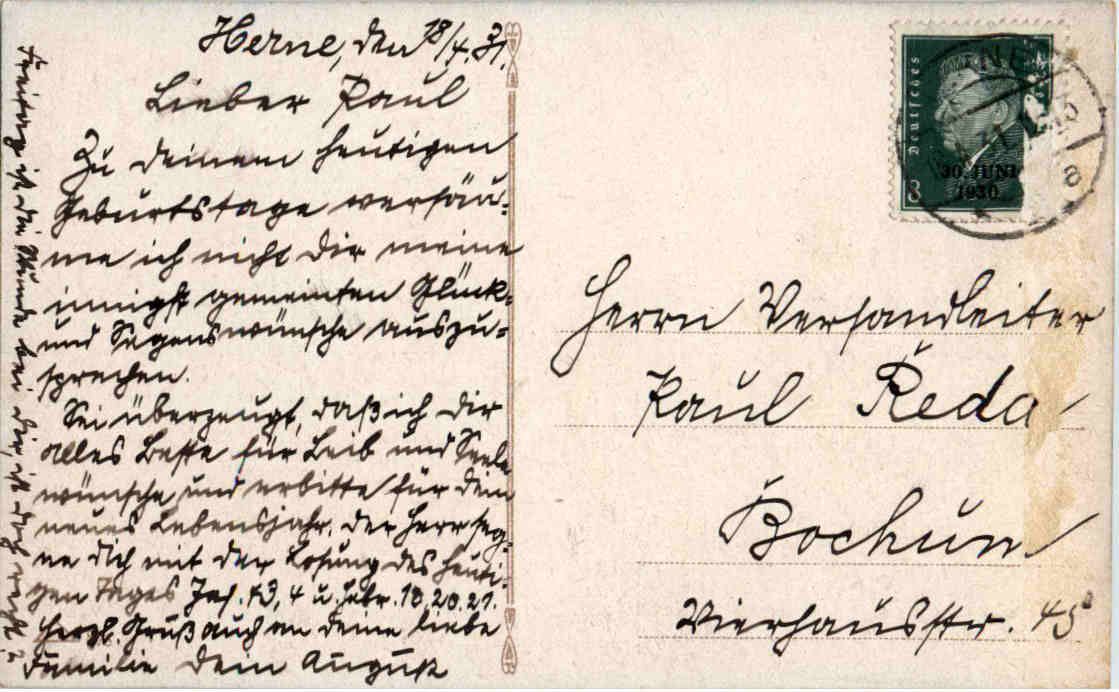 Herne, den 18/4.31.
Lieber Paul
Zu deinem heutigen
Geburtstage versäu-
me ich nicht dir meine
innigst gemeinten Glück-
und Segenswünsche auszu-
sprechen.
Sei überzeugt, daß ich dir
alles Beste für Leib und Seele
wünsche und erbitte für dein
neues Lebensjahr. Der Herr seg-
ne dich mit der Losung des heuti-
gen Tages Jes. 43, 4 u. Hebr. 10,20.21.
Herzl. Gruß auch an deine liebe
Familie Dein August
Freitag ist die Stunde bei dir, ist doch recht?
Deutsches
8
30. JUNI
1930
HERNE
a
Herrn Versandleiter
Paul Reda
Bochum
Vierhausstr. 45